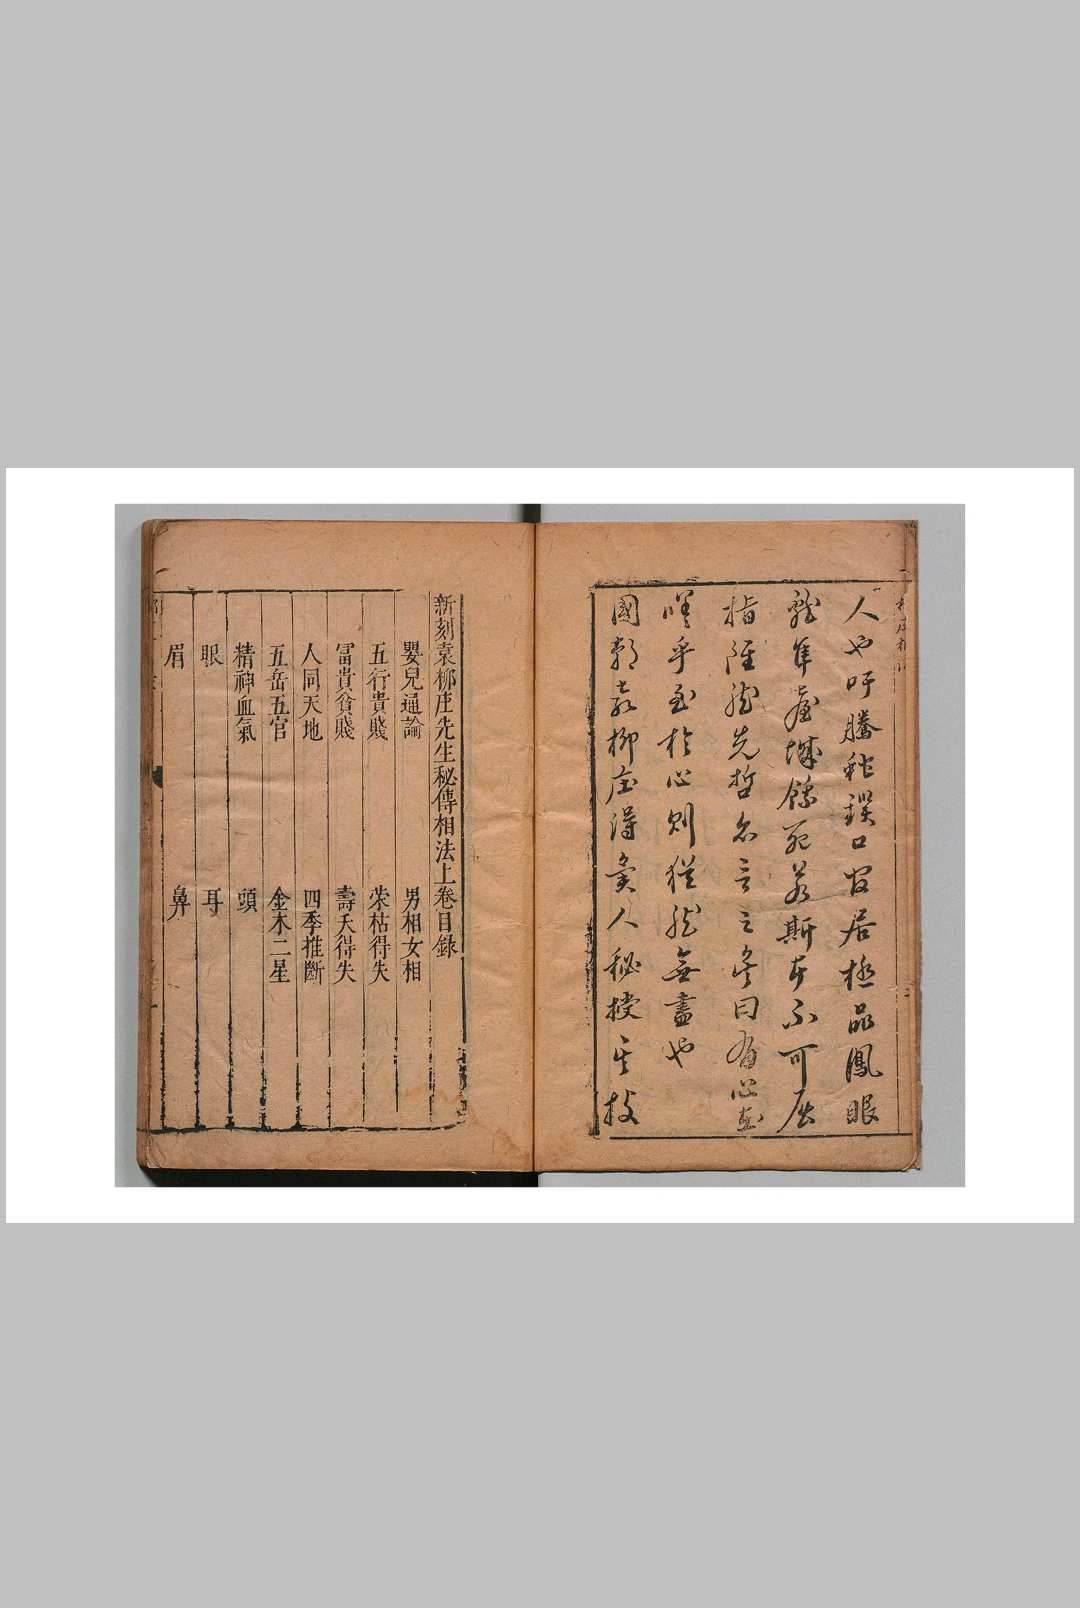 人也吁騰蛇鎖口曾居極品鳳眼
龍隼臺城餓死若斯本不可
指陳然先哲名言之矣曰有心
嗟乎至於心則猶然無盡也
國朝袁柳庄得異人秘授其技
新刻袁柳庄先生秘傳相法上卷目錄
嬰兒通論 男相女相
五行貴賤 荣枯得失
富貴貧賤 壽夭得失
人同天地 四季推斷
五岳五官 金木二星
精神血氣 頭
眼 耳
眉 鼻